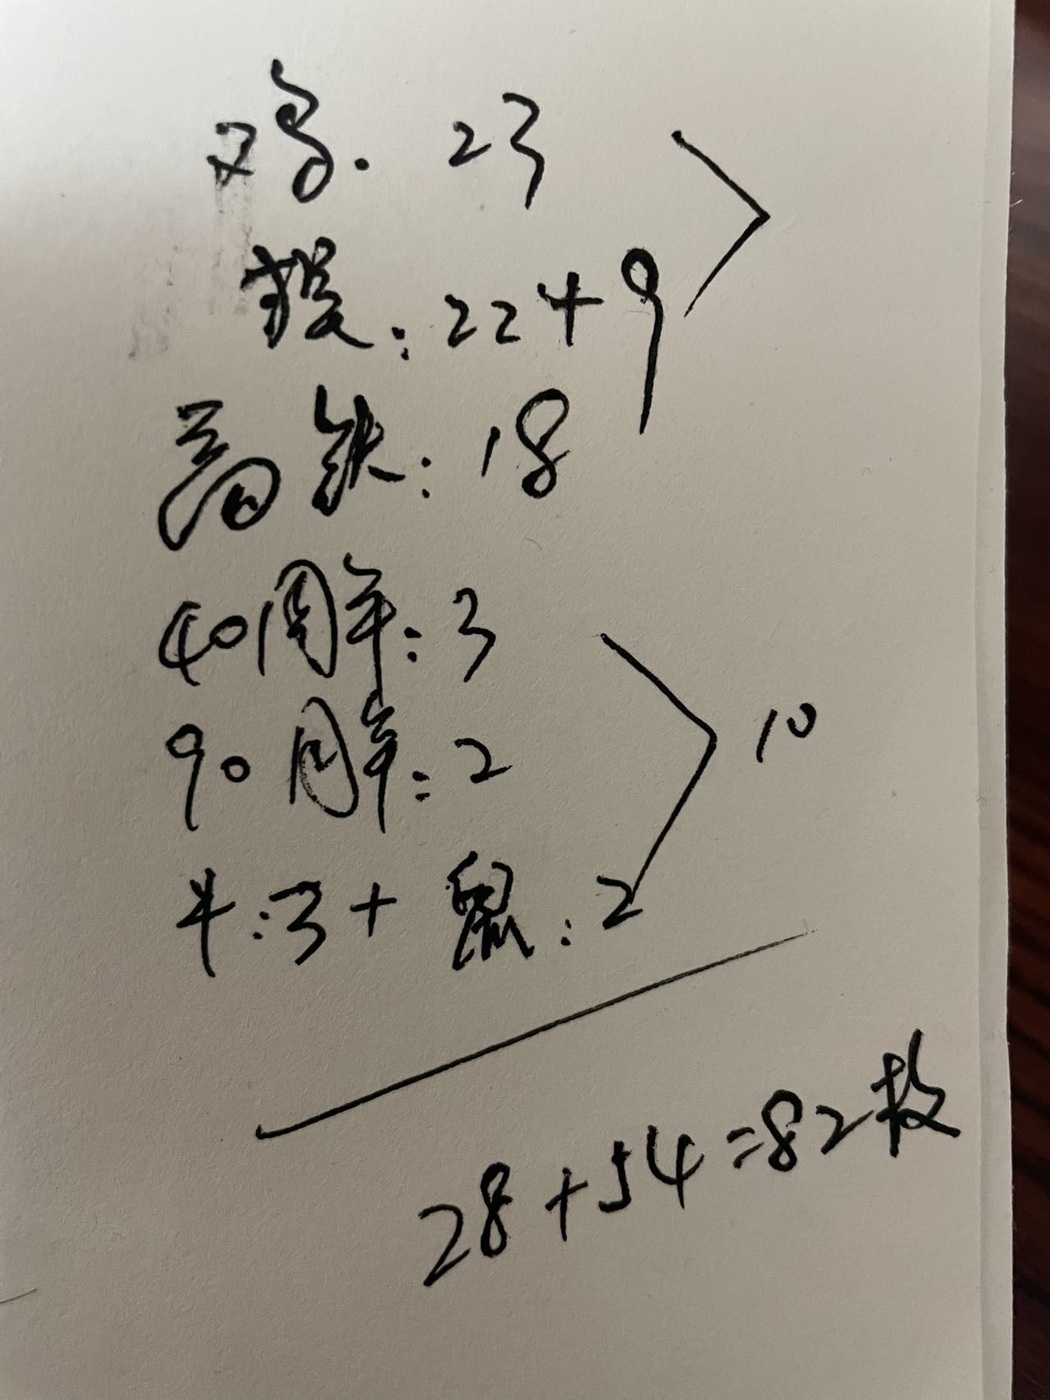 鸡. 23
猴: 22+9
高铁: 18
40周年: 3
90周年: 2
10
牛: 3 + 鼠: 2
28+54=82枚